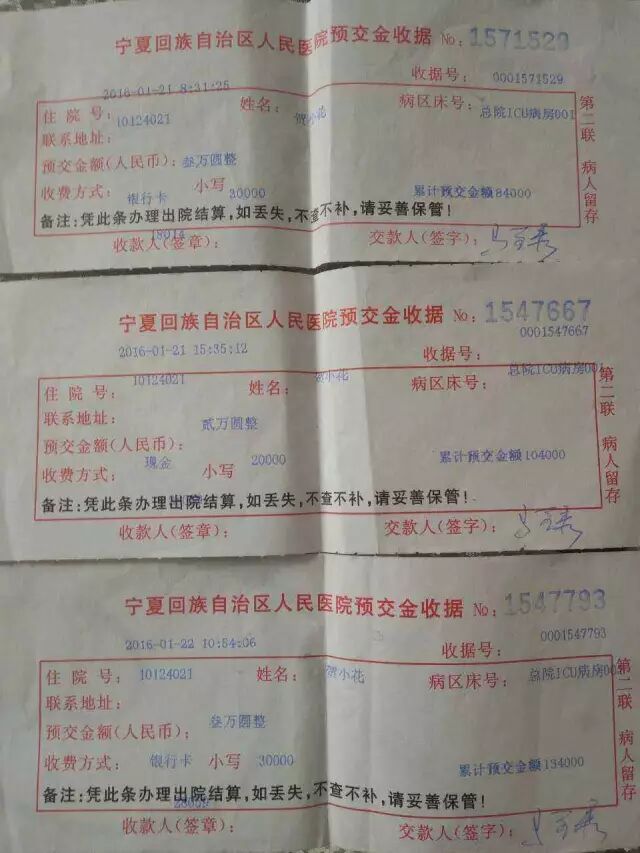 宁夏回族自治区人民医院预交金收据 No: 1571529
收据号: 0001571529
2016-01-21 8:31:25
住 院 号: 10124021 姓名: 贺小花 病区床号: 总院ICU病房001
联系地址:
预交金额(人民币): 叁万圆整
收费方式: 银行卡 小写 30000 累计预交金额84000
备注:凭此条办理出院结算,如丢失,不查不补,请妥善保管!
收款人(签章): 交款人(签字):
第二联 病人留存
宁夏回族自治区人民医院预交金收据 No: 1547667
0001547667
2016-01-21 15:35:42 收据号:
住 院 号: 10124021 姓名: 贺小花 病区床号: 总院ICU病房001
联系地址:
预交金额(人民币): 贰万圆整
收费方式: 现金 小写 20000 累计预交金额104000
备注:凭此条办理出院结算,如丢失,不查不补,请妥善保管!
收款人(签章): 交款人(签字):
第二联 病人留存
宁夏回族自治区人民医院预交金收据 No: 1547793
2016-01-22 10:54:06 收据号: 0001547793
住 院 号: 10124021 姓名: 贺小花 病区床号: 总院ICU病房001
联系地址:
预交金额(人民币): 叁万圆整
收费方式: 银行卡 小写 30000 累计预交金额134000
备注:凭此条办理出院结算,如丢失,不查不补,请妥善保管!
收款人(签章): 交款人(签字):
第二联 病人留存